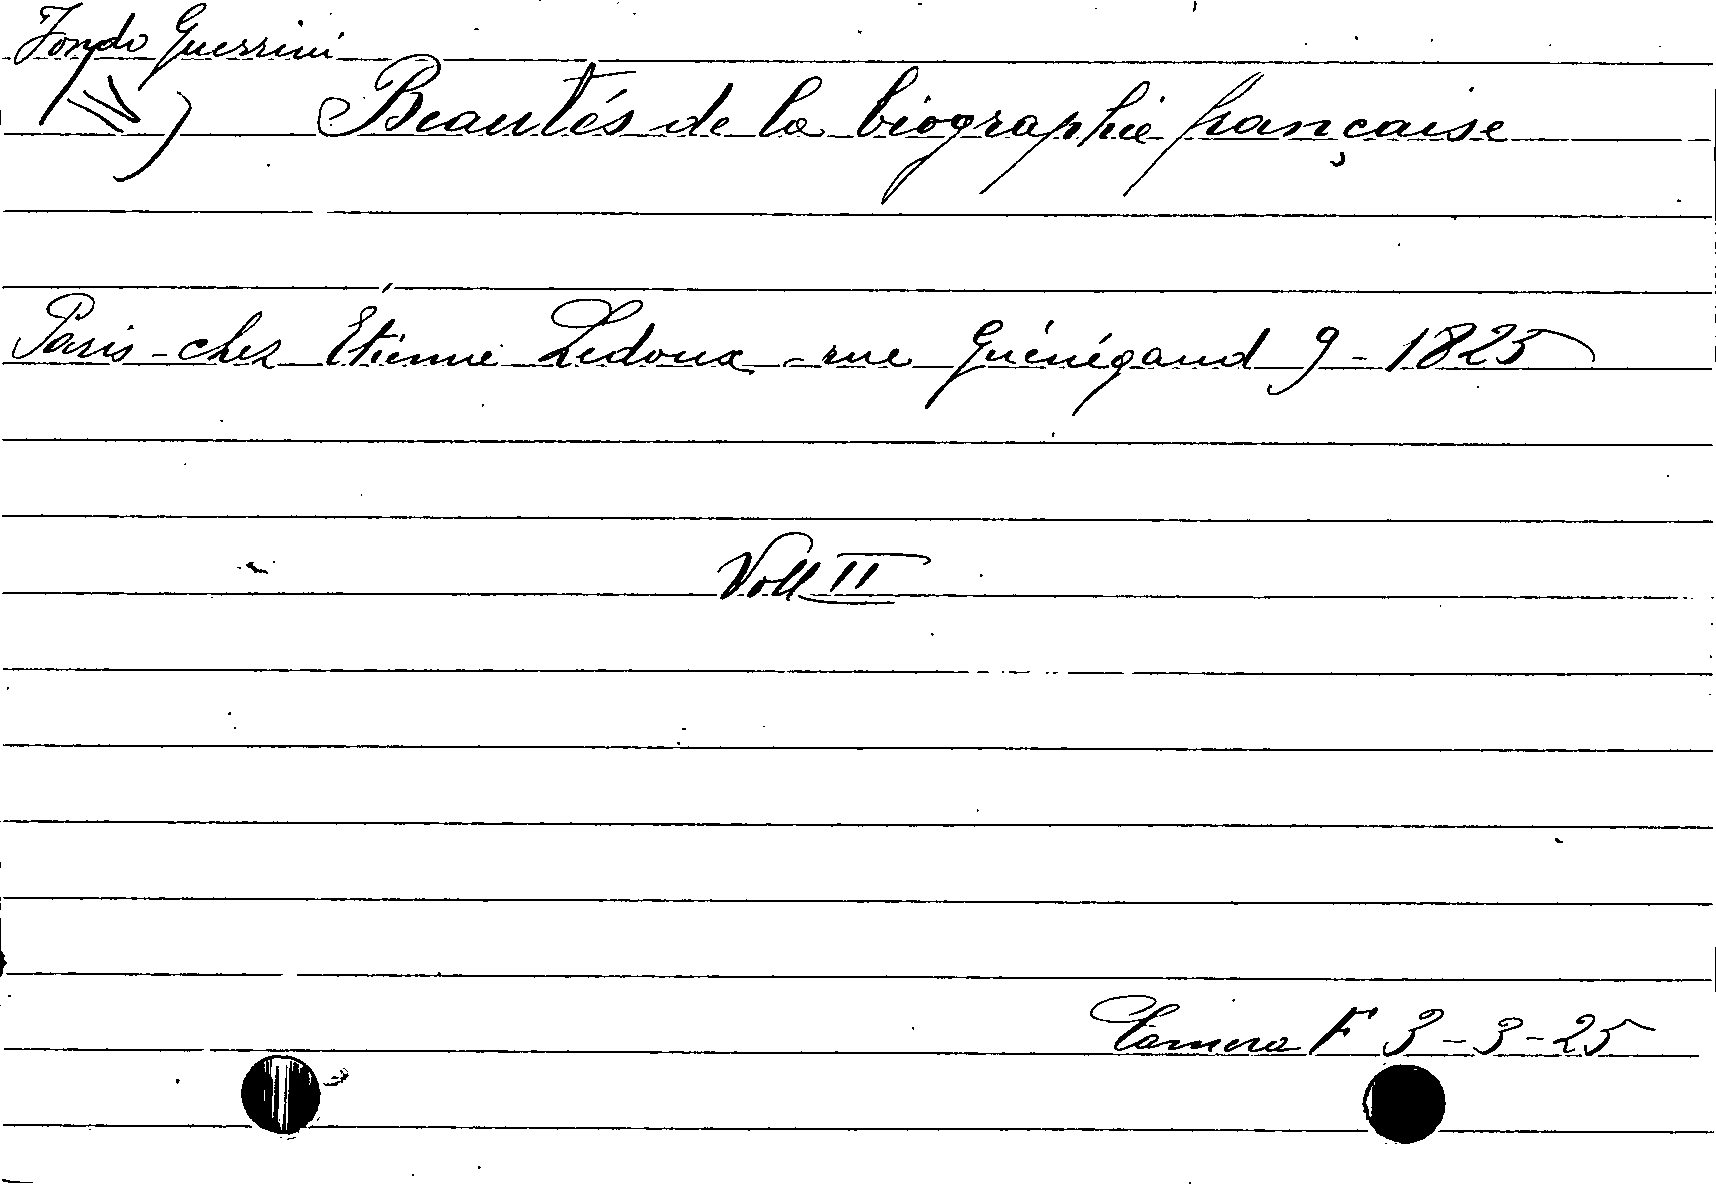 Fondo Guerrini
Beautés de la biographie française
Paris - chez Étienne Ledoux - rue Guénégaud 9 - 1825
Voll II
Camera F 3-3-25